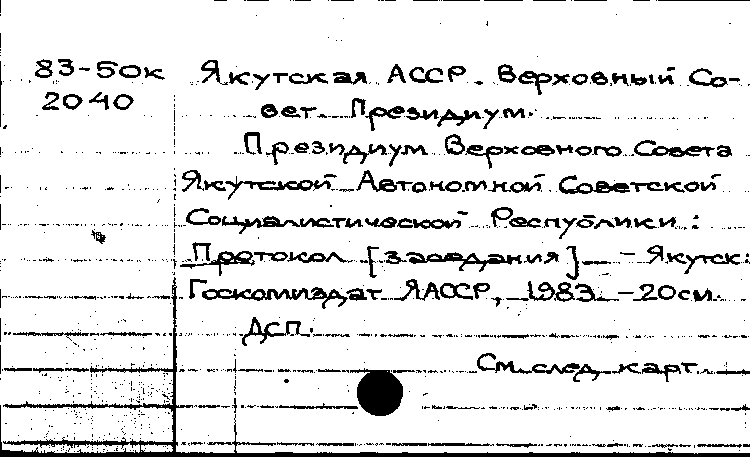 83-50к Якутская АССР. Верховный Со-
2040 вет. Президиум.
Президиум Верховного Совета
Якутской Автономной Советской
Социалистической Республики:
Протокол [заседания] – Якутск:
Госкомиздат ЯАССР, 1983. – 20см.
ДСП.
См. след. карт.